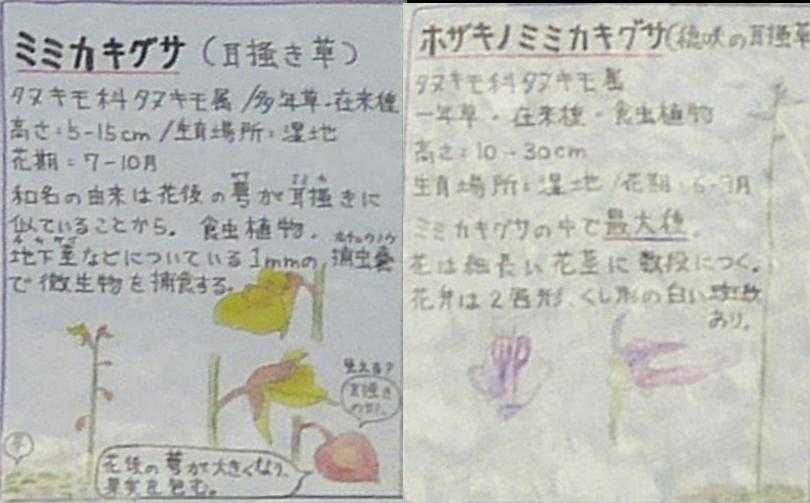 ミミカキグサ(耳掻き草)
タヌキモ科タヌキモ属/多年草・在来種
高さ:5-15cm/生育場所:湿地
花期:7-10月
和名の由来は花後の萼が耳掻きに
似ていることから。食虫植物。
地下茎などについている1mmの捕虫嚢
で微生物を捕食する。
見える?
耳掻き
花後の萼が大きくなり、
果実を包む。
ホザキノミミカキグサ(穂咲の耳掻草
タヌキモ科タヌキモ属
一年草・在来種・食虫植物
高さ:10-30cm
生育場所:湿地/花期:6-9月
ミミカキグサの中で最大種。
花は細長い花茎に数段につく。
花弁は2唇形、くし形の白い斑紋
あり。